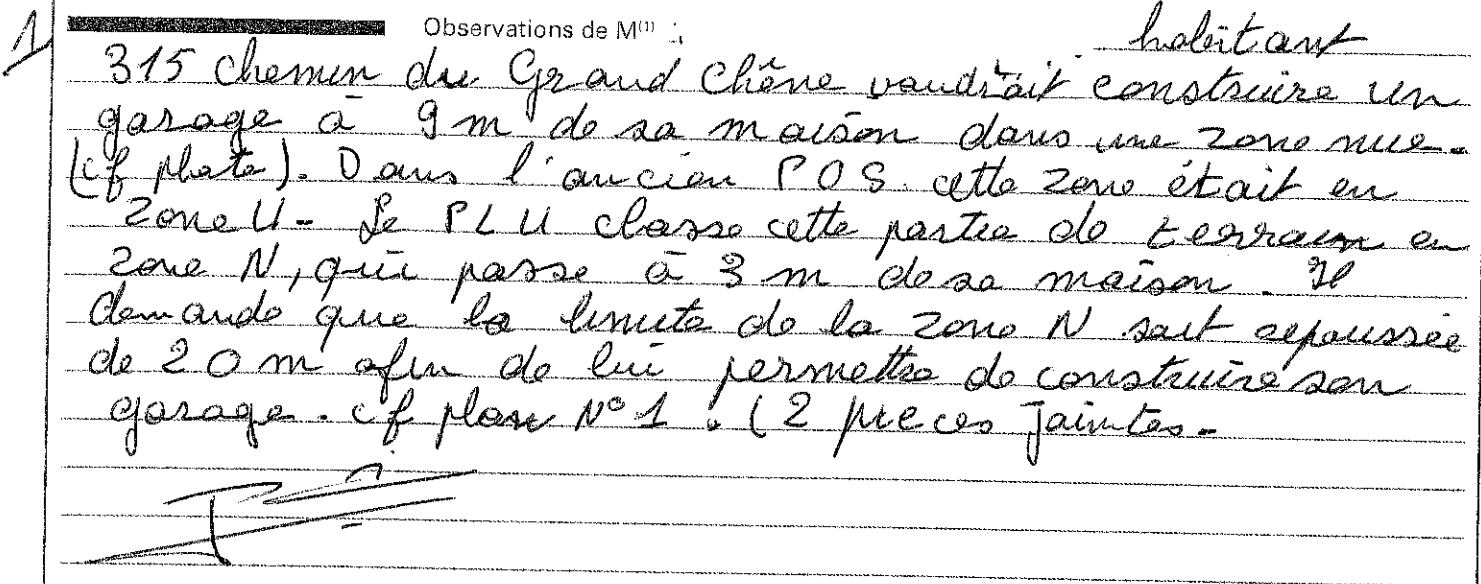 1 Observations de M(1) : habitant
315 chemin du Grand Chêne voudrait construire un
garage à 9 m de sa maison dans une zone nue.
(cf photo). Dans l'ancien POS cette zone était en
zone U - Le PLU classe cette partie de terrain en
zone N, qui passe à 3 m de sa maison. Il
demande que la limite de la zone N soit repoussée
de 20 m afin de lui permettre de construire son
garage. cf plan N° 1. (2 pieces jointes.